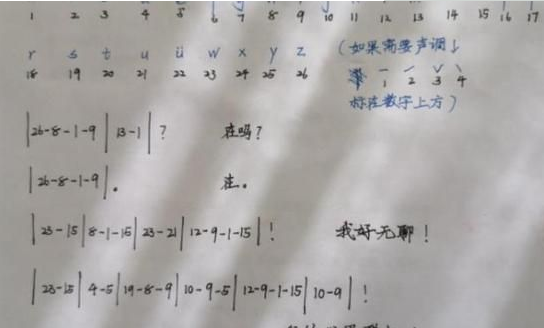 1 2 3 4 5 6 7 8 9 10 11 12 13 14 15 16 17
r s t u ü w x y z (如果需要声调↓
18 19 20 21 22 23 24 25 26 1 2 3 4
标注数字上方)
|26-8-1-9|13-1|? 在吗?
|26-8-1-9|。 在。
|23-15|8-1-15|23-21|12-9-1-15|! 我好无聊!
|23-15|4-5|19-8-9|10-9-5|12-9-1-15|10-9|!